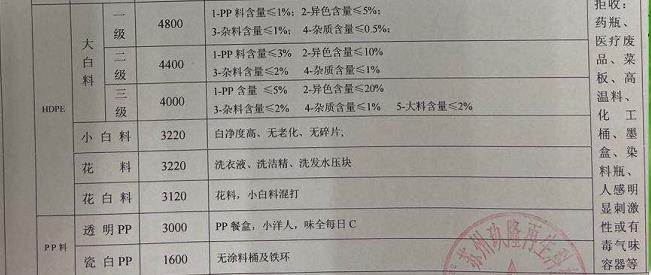 HDPE
大白料
一级
4800
1-PP 料含量≤1%； 2-异色含量≤5%；
3-杂料含量≤1%； 4-杂质含量≤0.5%；
二级
4400
1-PP 料含量≤3% 2-异色含量≤10%
3-杂料含量≤2% 4-杂质含量≤1%
三级
4000
1-PP 含量 ≤5% 2-异色含量≤20%
3-杂料含量≤2% 4-杂质含量≤1% 5-大料含量≤2%
小白料
3220
白净度高、无老化、无碎片,
花料
3220
洗衣液、洗洁精、洗发水压块
花白料
3120
花料，小白料混打
PP料
透明 PP
3000
PP 餐盒，小洋人，味全每日 C
瓷白 PP
1600
无涂料桶及铁环
拒收：
药瓶、
医疗废
品、菜
板、高
温料、
化工
桶、墨
盒、染
料瓶、
人感明
显刺激
性或有
毒气味
容器等
苏州玖隆再生科